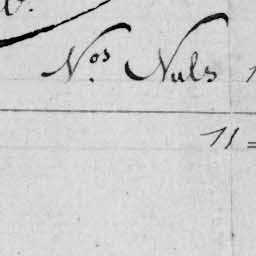 N.os Nuls
11 =